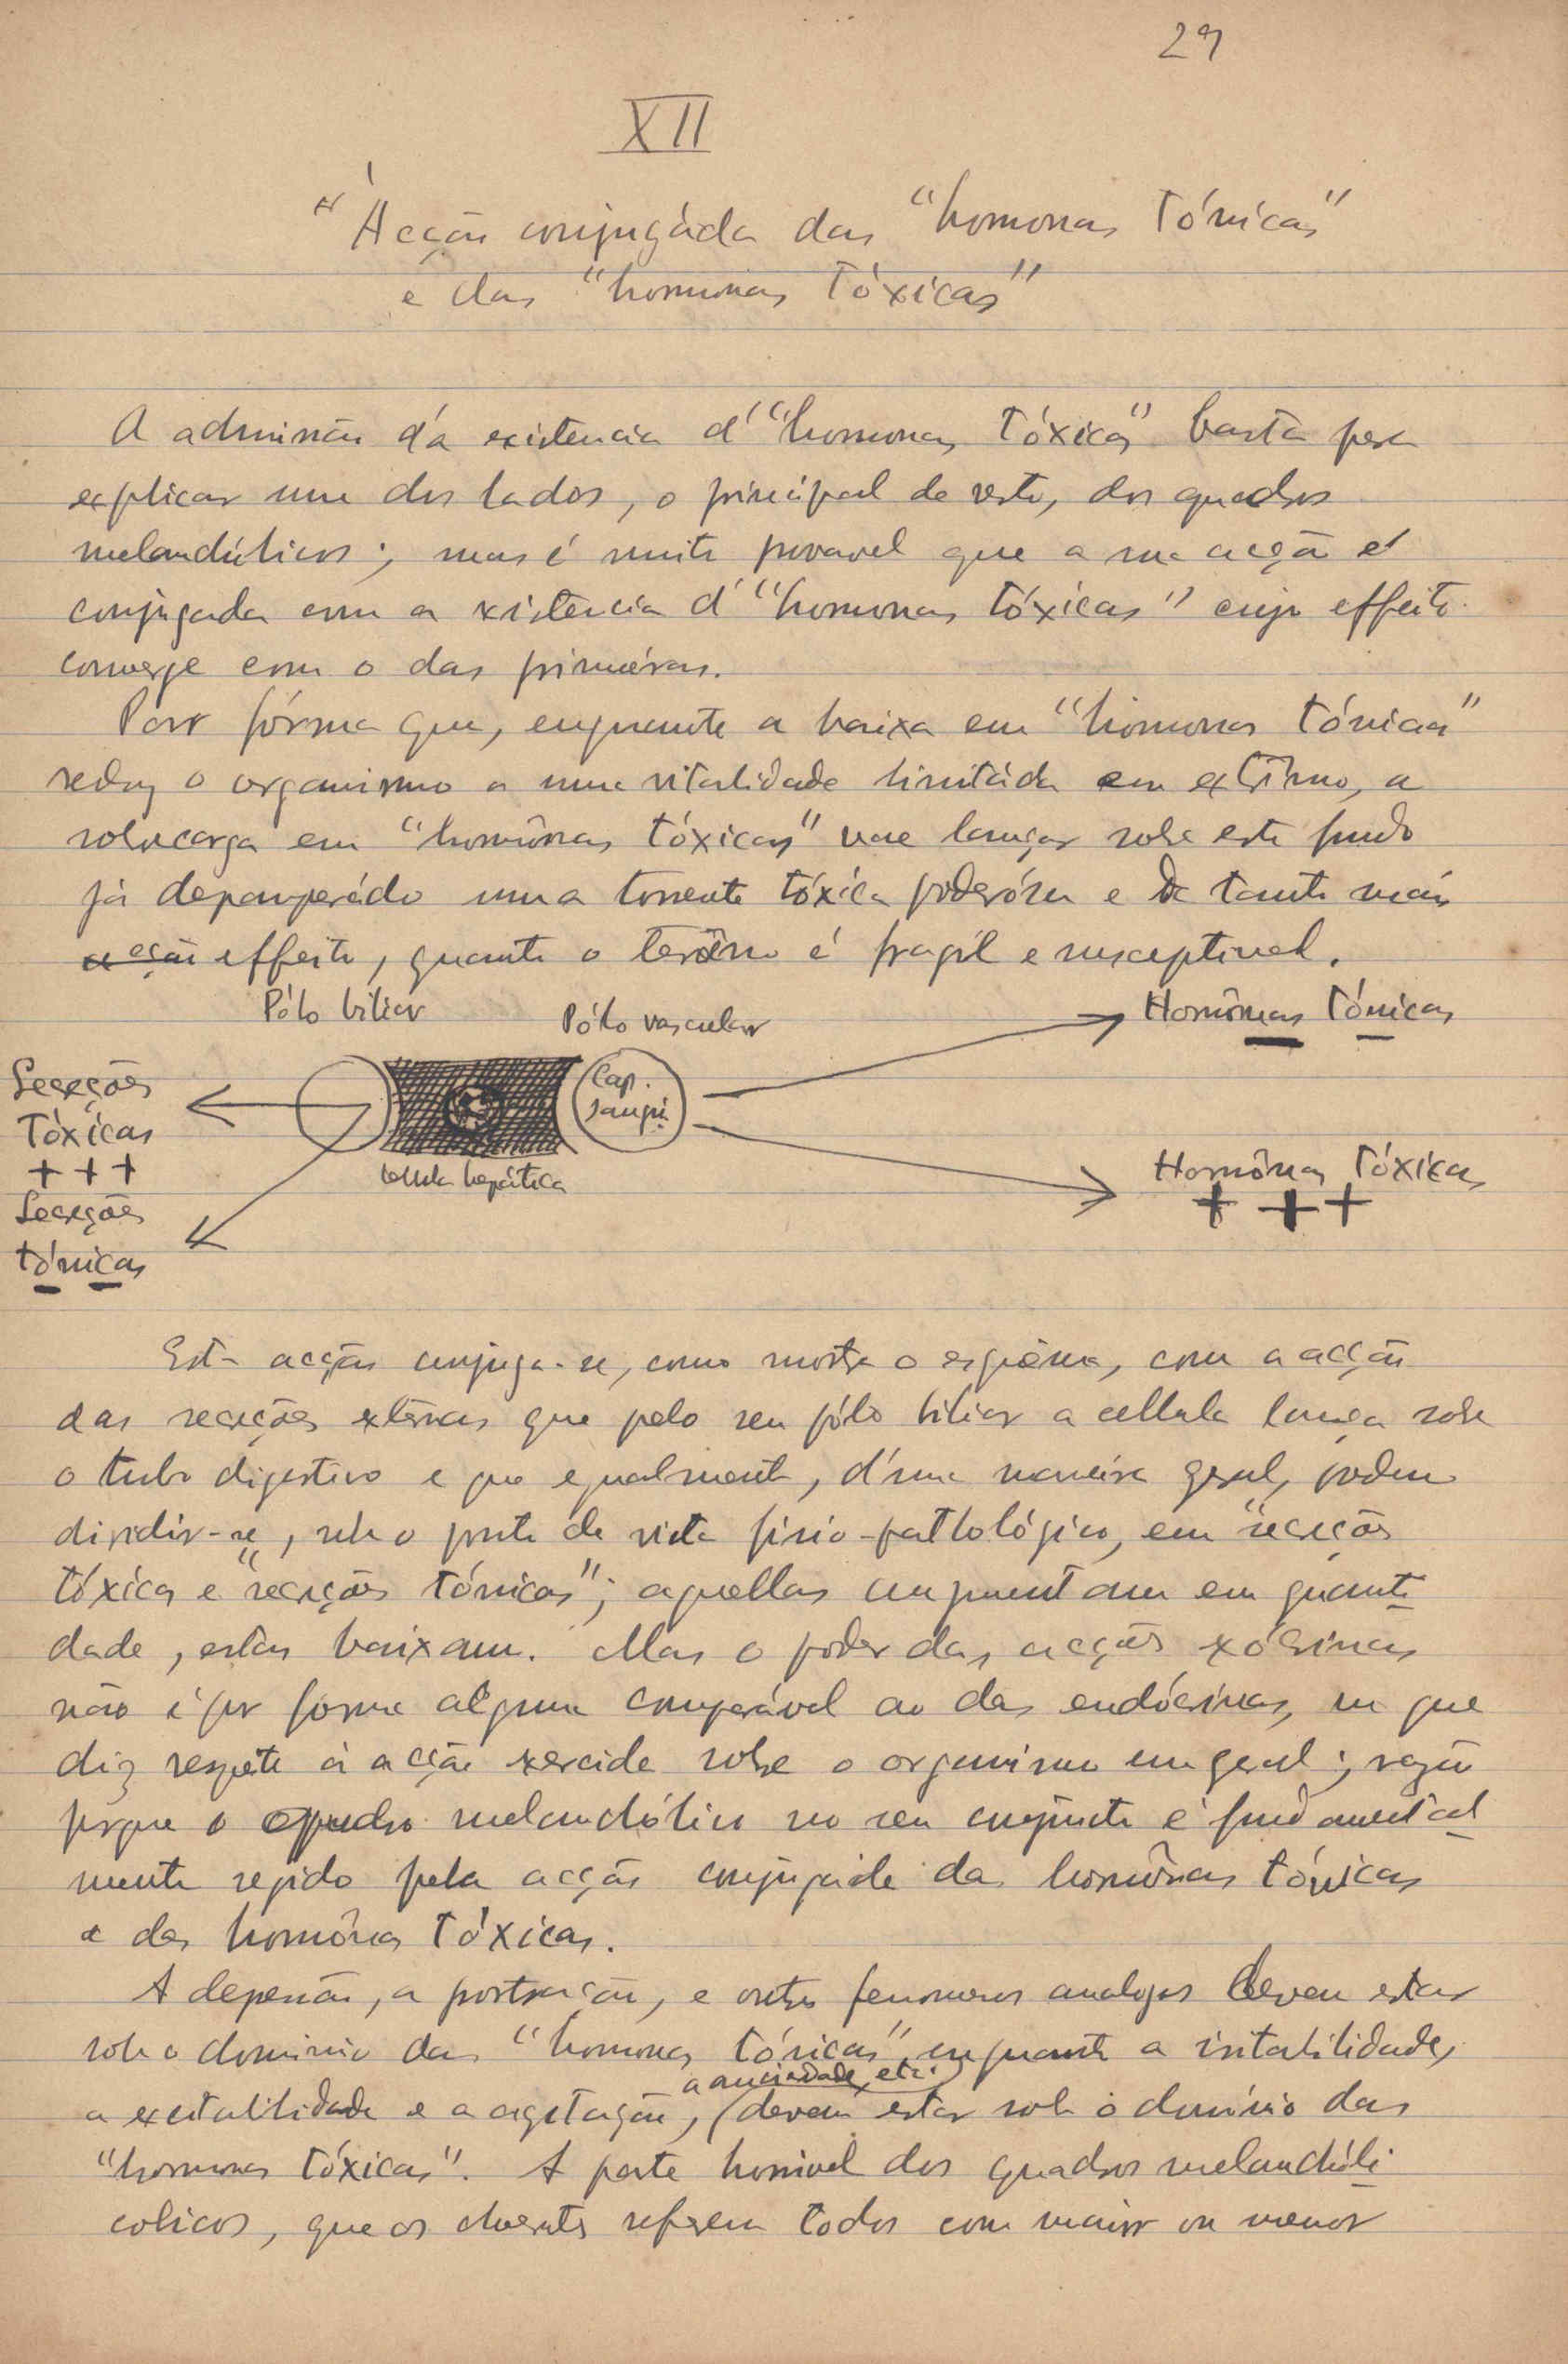 29
XII
"Acção conjugáda das "hormonas Tónicas"
e das "hormonas Tóxicas"
A admissão d'a existencia d'"hormonas Tóxicas" basta para
explicar um dos lados, o principal de resto, dos quadros
melanchólicos; mas é muito provavel que a sua acção é
conjugada com a existencia d'"hormonas tóxicas" cujo effeito
converge com o das primeiras.
Por fórma que, enquanto a baixa em "hormonas tónicas"
reduz o organismo a uma vitalidade limitáda em extrêmo, a
sobrecarga em "hormônas tóxicas" vae lançar sobre este fundo
já depauperádo uma torrente tóxica poderósa e de tanto mais
effeito, quanto o terrêno é fragil e susceptivel.
Pólo biliar
Pólo vascular
Hormônas Tónicas
Secreções
Tóxicas
+ + +
Secreções
tónicas
Cap.
sangu.
Cellula hepática
Hormônas Tóxicas
+ + +
Esta acção conjuga-se, como mostra o esquêma, com a acção
das secreções extérnas que pelo seu pólo biliar a cellula lança sobre
o tubo digestivo e que egualmente, d'uma maneira geral, podem
dividir-se, sob o ponto de vista fisio-pathológico, em "secreções
tóxicas e "secreções tónicas"; aquellas augmentam em quanti
dade, estas baixam. Mas o poder das acções exócrinas
não é por forma alguma comparável ao das endócrinas, no que
diz respeito á acção exercida sobre o organismo em geral; razão
porque o quadro melanchólico no seu conjuncto é fundamental
mente regido pela acção conjugáda das hormônas tónicas
e das hormônas Tóxicas.
A depressão, a prostração, e outros fenomenos analogos devem estar
sob o dominio das "hormonas tónicas", enquanto a irritabilidade,
a anciedade, etc.
a excitabilidade e a agitação, (devem estar sob o domínio das
"hormonas tóxicas". A parte horrivel dos quadros melanchóli
colicos, que os doentes referem todos com maior ou menor